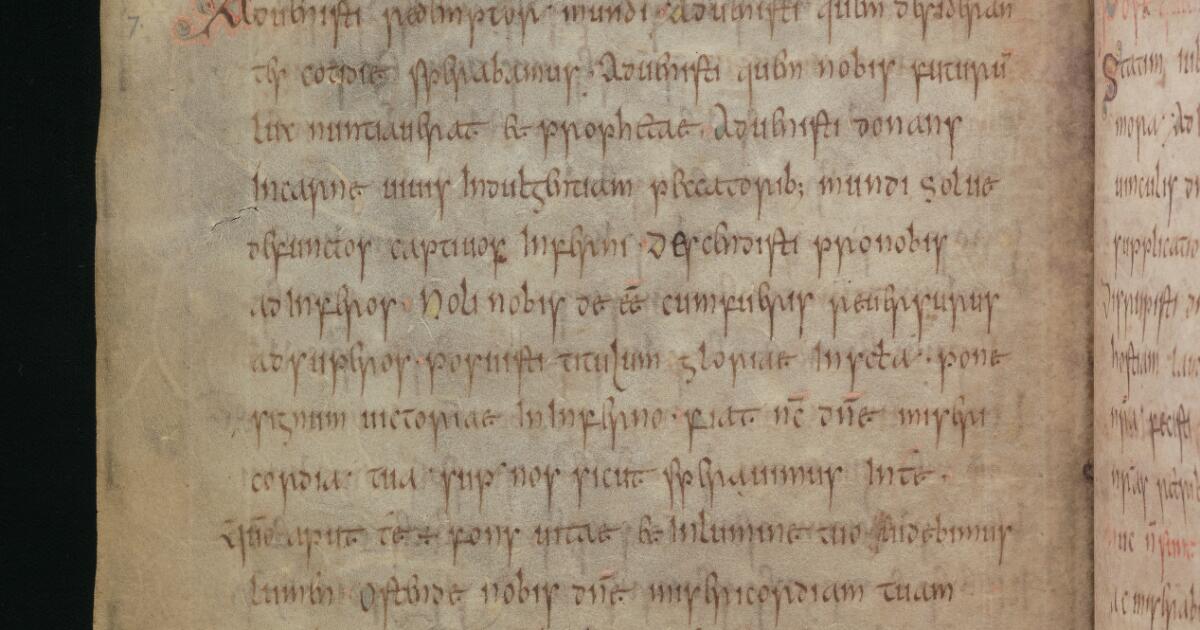 7
Aduenisti redemptor mundi · Aduenisti quem desideran
tes cotidie sperabamus · Aduenisti quem nobis futurū
lex nuntiauerat & prophetae · Aduenisti donans
Incarne uiuis Indulgentiam peccatorib; mundi Solue
defunctos captiuos Inferni · Descendisti pronobis
adInferos · Noli nobis de eē cumfueris reuersurus
adsuperos · posuisti titulum gloriae Inrēta · pone
signum uictoriae InInferno · fiat nē dn̄e miseri
cordia tua sup nos sicut sperauimus Inte ·
Qm̄ aput te ē fons uitae & Inlumine tuo uidebimus
lumen Ostende nobis dn̄e misericordiam tuam
Statim
mora Ad
uinculis di
supplicatio
dirupisti
hostem
n̄ra fecisti